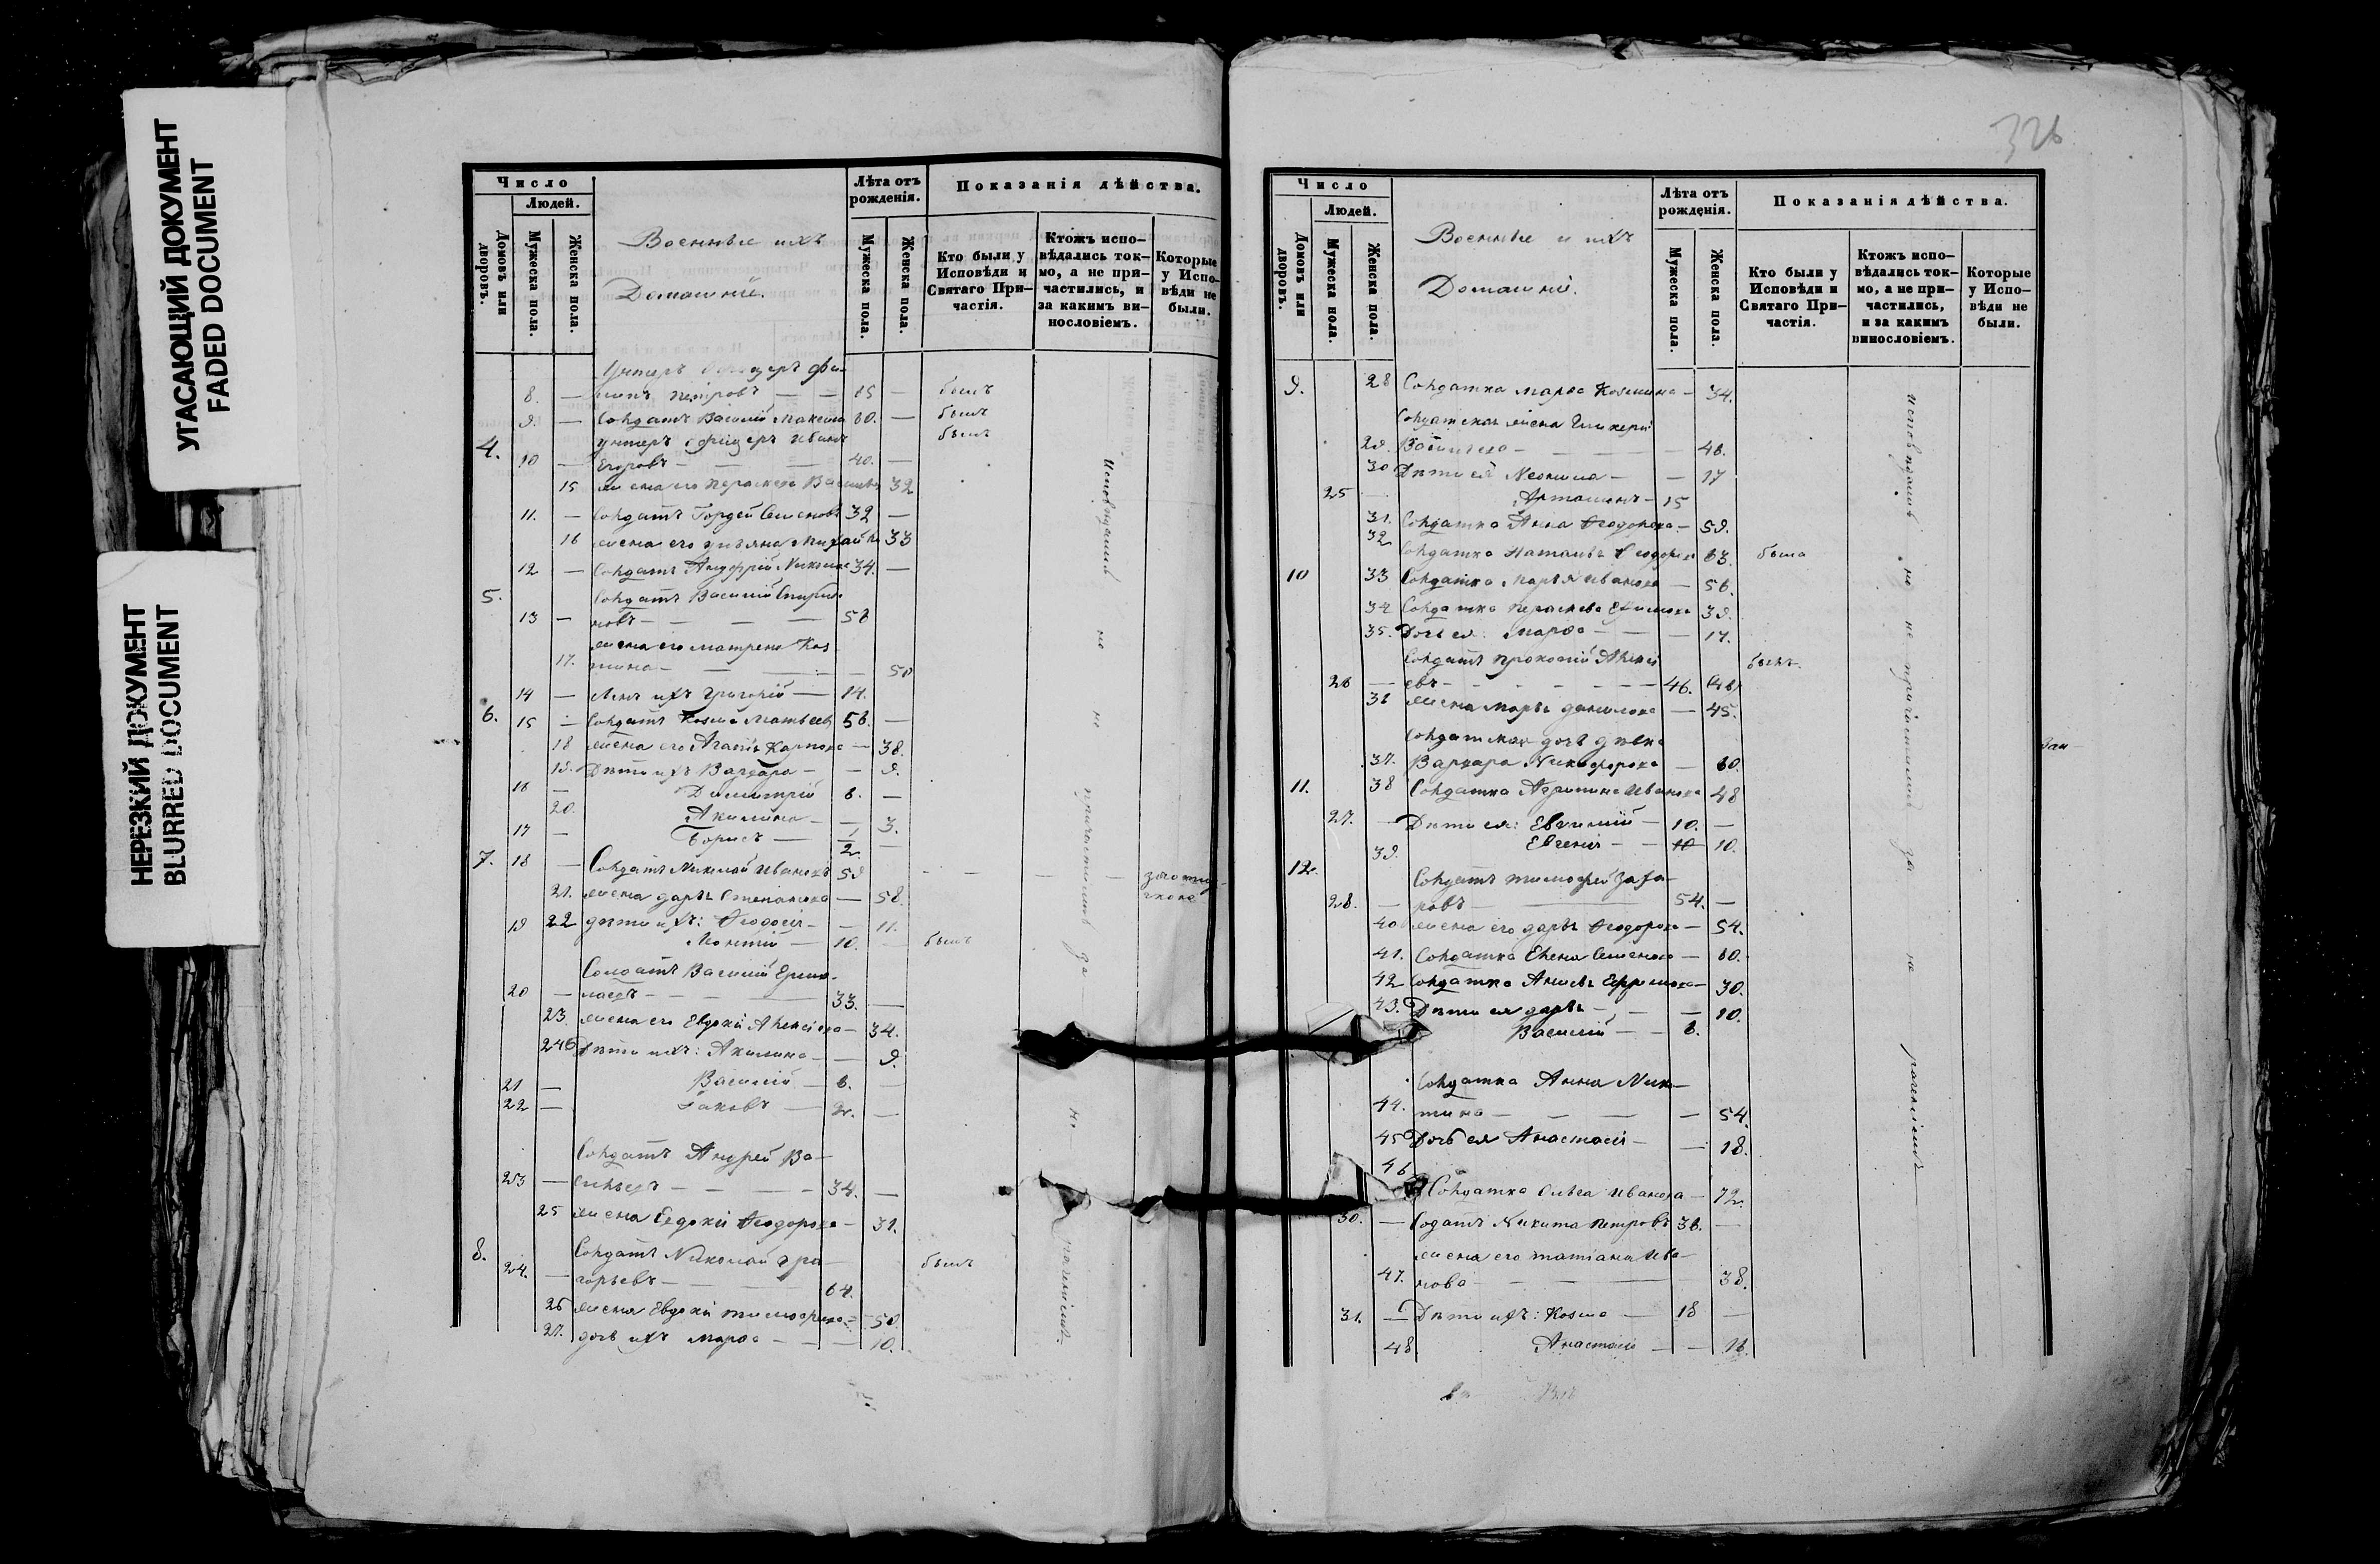 УГАСАЮЩИЙ ДОКУМЕНТ
FADED DOCUMENT
НЕРЕЗКИЙ ДОКУМЕНТ
BLURRED DOCUMENT
Число
Людей.
Домовъ или дворовъ.
Мужеска пола.
Женска пола.
Военные ихъ
Домашніе.
Лѣта отъ рожденія.
Мужеска пола.
Женска пола.
Показанія дѣйства.
Кто были у Исповѣди и Святаго Причастія.
Ктожъ исповѣдались токмо, а не причастились, и за какимъ винословіемъ.
Которые у Исповѣди не были.
Унтеръ офицеръ Фи-
8. — липъ Петровъ — — 15 — былъ
9. — Солдатъ Василій Максима 80. — былъ
4. Унтеръ офицеръ Иванъ былъ
10 — Егоровъ — — 40. —
15 жена его Пераскева Васильева 32
11. — Солдатъ Гордей Семеновъ 32 —
16 жена его Ульяна Михайл 33
12 — Солдатъ 34. —
5. Солдатъ Василій Спири-
13 — новъ — — — 58
жена его Матрена Коз-
17. мина — — — 50
14 — сынъ ихъ Григорій — 14.
6. 15 — Солдатъ Козма Матвеевъ 56. —
18 жена его Агапія Карпова — 38.
19. Дѣти ихъ Варвара — — 9.
16 — Димитрій 6. —
20. Акилина — — 3.
17 — Борисъ — 2. —
7. 18 — Солдатъ Николай Ивановъ 59
21. жена Дарья Степанова — 58.
22 дѣти ихъ: Ѳеодосія — — 11.
19 10. — былъ
Солдатъ Василій Ермо-
20 — лаевъ — — — 33. —
23. жена его Евдокія Алексіева — 34.
24 Дѣти ихъ: Акилина — — 9.
21 — Василій — 6. —
22 — Іаковъ — 2. —
Солдатъ Андрей Ва-
23 — сильевъ — — — 34. —
25 жена Евдокія Ѳеодорова — 31.
8. Солдатъ Николай Гри-
24. — горьевъ — — 64. былъ
26 жена Евдокія Тимофеева — 50.
27. дочь ихъ Марѳа — — 10.
Исповѣдались но не причастились за не раченіемъ
326
Число
Людей.
Домовъ или дворовъ.
Мужеска пола.
Женска пола.
Военные и ихъ
Домашніе.
Лѣта отъ рожденія.
Мужеска пола.
Женска пола.
Показанія дѣйства.
Кто были у Исповѣди и Святаго Причастія.
Ктожъ исповѣдались токмо, а не причастились, и за какимъ винословіемъ.
Которые у Исповѣди не были.
9. 28 Солдатка Марѳа Козмина — 34.
Солдатская жена Гликерія
29. Васильева — — — 48.
30 Дѣти ея Неонила — — 17
25 — 15
31. Солдатка Анна Ѳеодорова — 59.
32 Солдатка Наталья Ѳеодорова 63. была
10 33 Солдатка Марья Иванова — 56.
34 Солдатка Пераскева Ефимова 39.
35. Дочь ея: Марѳа — — 17.
Солдатъ Прокопій Алексі-
26 — евъ — — — 46. былъ
36 жена Марья Данилова — 45.
Солдатская дочь дѣвка
37. Варвара Никифорова — 60.
11. 38 Солдатка Агрипина Иванова 48
27. — Дѣти ея: Евгеній — 10. —
39. Евгенія — — 10.
12. Солдатъ Тимофей Заха-
28. — ровъ — — 54. —
40 жена его Дарья Ѳеодорова — 54.
41. Солдатка Елена Семенова — 60.
42 Солдатка Ефимова — 30.
43. Дѣти ея Дарья — — 10.
Василій — — 6.
Солдатка Анна Ники-
44. тина — — — 54.
45 Дочь ея Анастасія — — 18.
46 Солдатка Ольга Иванова — 72.
30. — Солдатъ Никита Петровъ 38. —
жена его Татіана Ива-
47. нова — — — 38.
31. — Дѣти ихъ: Козма — 18 —
48 Анастасія — — 16.
исповѣдались но не причастились за не раченіемъ